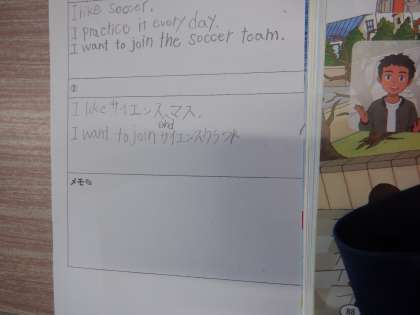 I like soccer.
I practice it every day.
I want to join the soccer team.
②
I like サイエンス、マス.
and
I want to join サイエンスクラブ
メモ
88